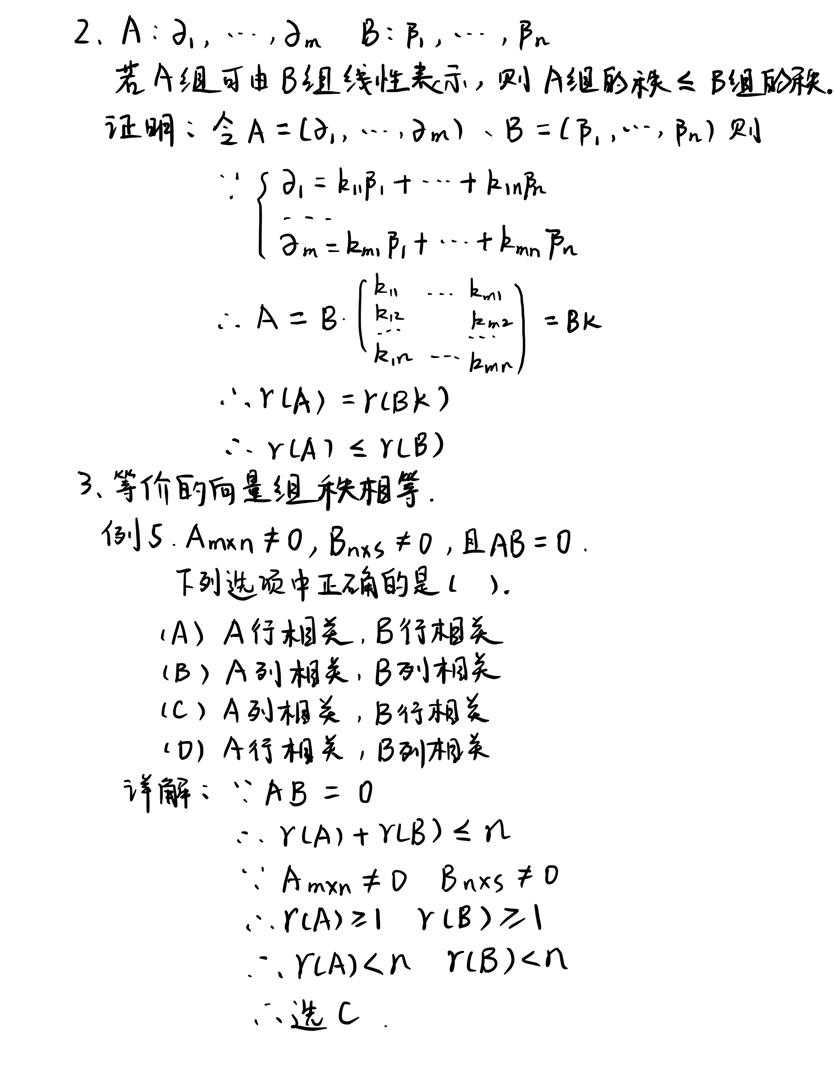 2、A:∂₁, ⋯, ∂ₘ B:β₁, ⋯, βₙ
若A组可由B组线性表示,则A组的秩≤B组的秩.
证明:令A=(∂₁, ⋯, ∂ₘ)、B=(β₁, ⋯, βₙ)则
∵ { ∂₁=k₁₁β₁+⋯+k₁ₙβₙ
----
∂ₘ=kₘ₁β₁+⋯+kₘₙβₙ
∴ A = B·( k₁₁ ⋯ kₘ₁
k₁₂ kₘ₂
⋯ ⋯
k₁ₙ ⋯ kₘₙ ) = BK
∴ r(A) = r(BK)
∴ r(A) ≤ r(B)
3、等价的向量组秩相等.
例5. Aₘₓₙ≠0, Bₙₓₛ≠0,且AB=0.
下列选项中正确的是( ).
(A) A行相关,B行相关
(B) A列相关,B列相关
(C) A列相关,B行相关
(D) A行相关,B列相关
详解:∵ AB = 0
∴ r(A)+r(B)≤n
∵ Aₘₓₙ≠0 Bₙₓₛ≠0
∴ r(A)≥1 r(B)≥1
∴ r(A)<n r(B)<n
∴ 选C.